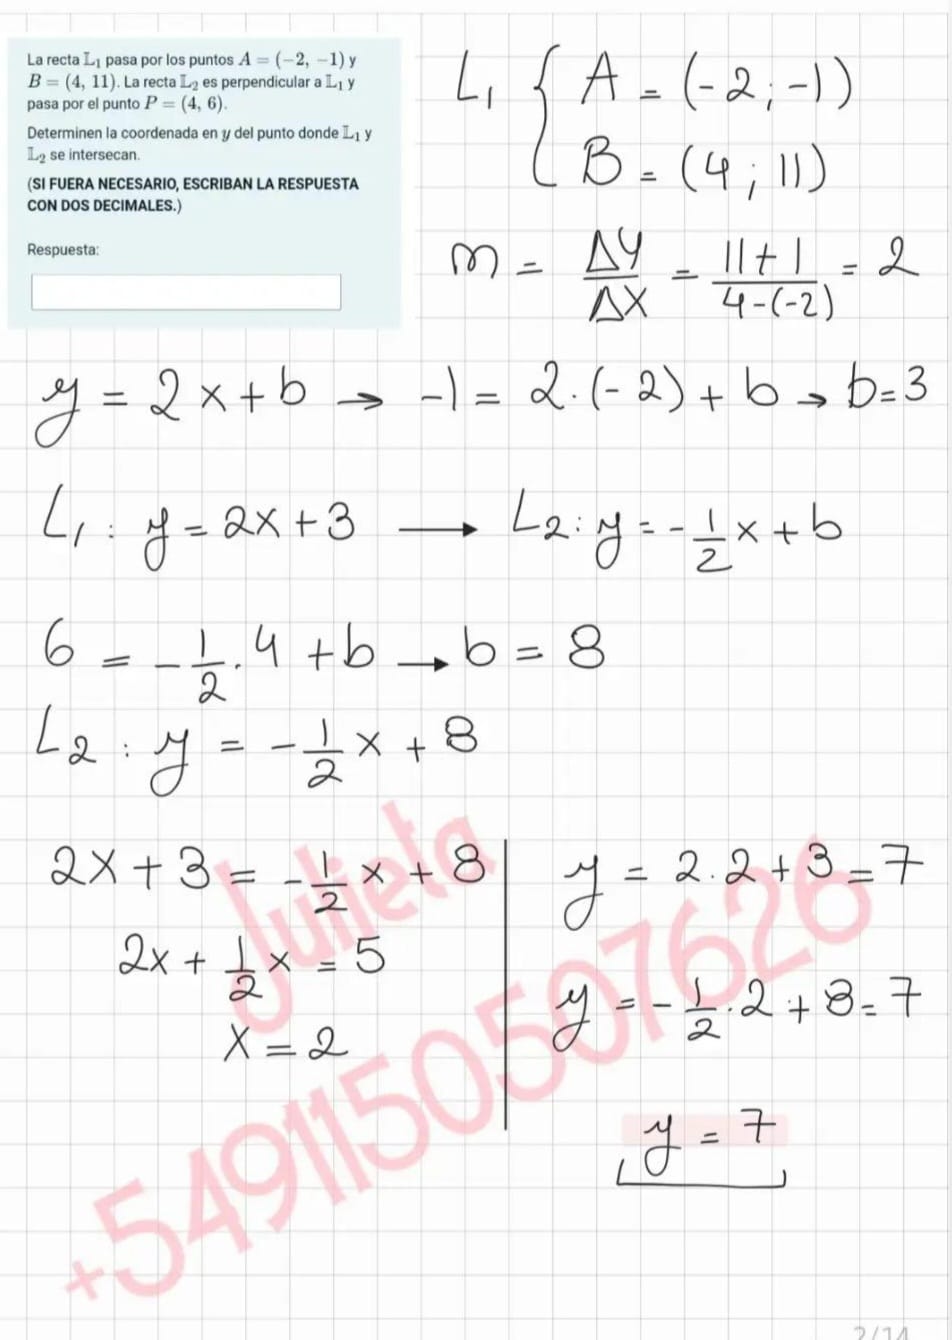 La recta 𝕃₁ pasa por los puntos A = (−2, −1) y
B = (4, 11). La recta 𝕃₂ es perpendicular a 𝕃₁ y
pasa por el punto P = (4, 6).
Determinen la coordenada en y del punto donde 𝕃₁ y
𝕃₂ se intersecan.
(SI FUERA NECESARIO, ESCRIBAN LA RESPUESTA
CON DOS DECIMALES.)
Respuesta:
L₁ { A = (-2 ; -1)
B = (4 ; 11)
m = ΔY/ΔX = (11+1)/(4-(-2)) = 2
y = 2x+b → -1 = 2.(-2) + b → b=3
L₁ : y = 2x+3 → L₂ : y = -1/2 x + b
6 = -1/2 . 4 + b → b = 8
L₂ : y = -1/2 x + 8
2x + 3 = -1/2 x + 8
2x + 1/2 x = 5
x = 2
y = 2.2 + 3 = 7
y = -1/2 . 2 + 8 = 7
y = 7
Julieta
+5491150507626
2/14